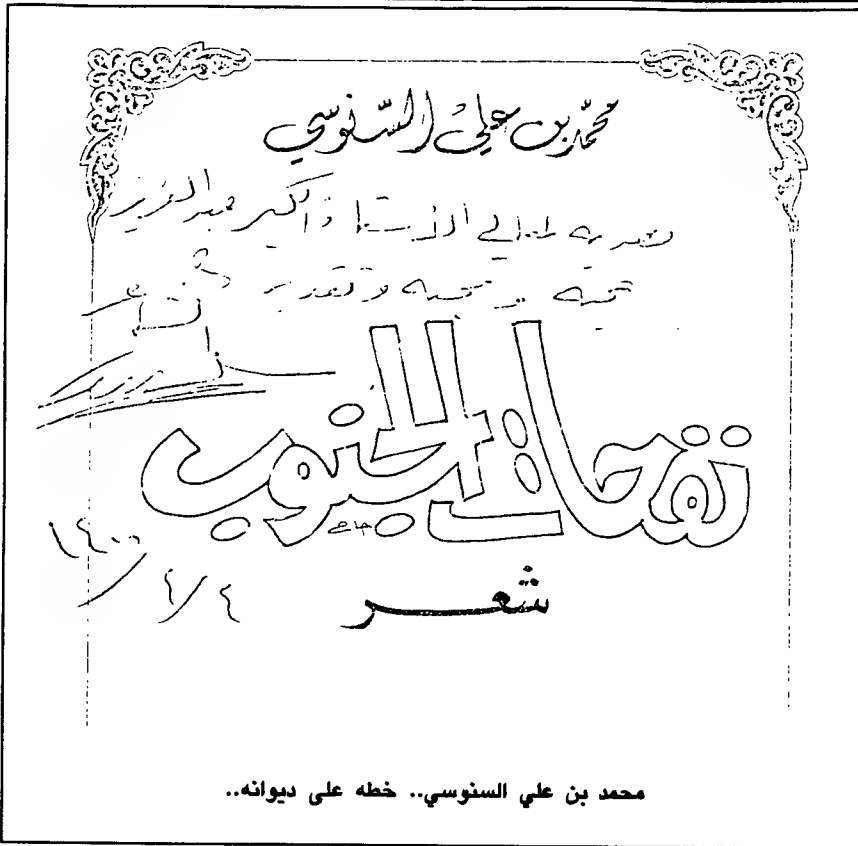 محمد بن علي السنوسي
لمعالي الأستاذ الكبير عبد العزيز
تحية ومحبة وتقدير
نفحات الجنوب
١٤٠٠
٤/٤
شعر
محمد بن علي السنوسي.. خطه على ديوانه..